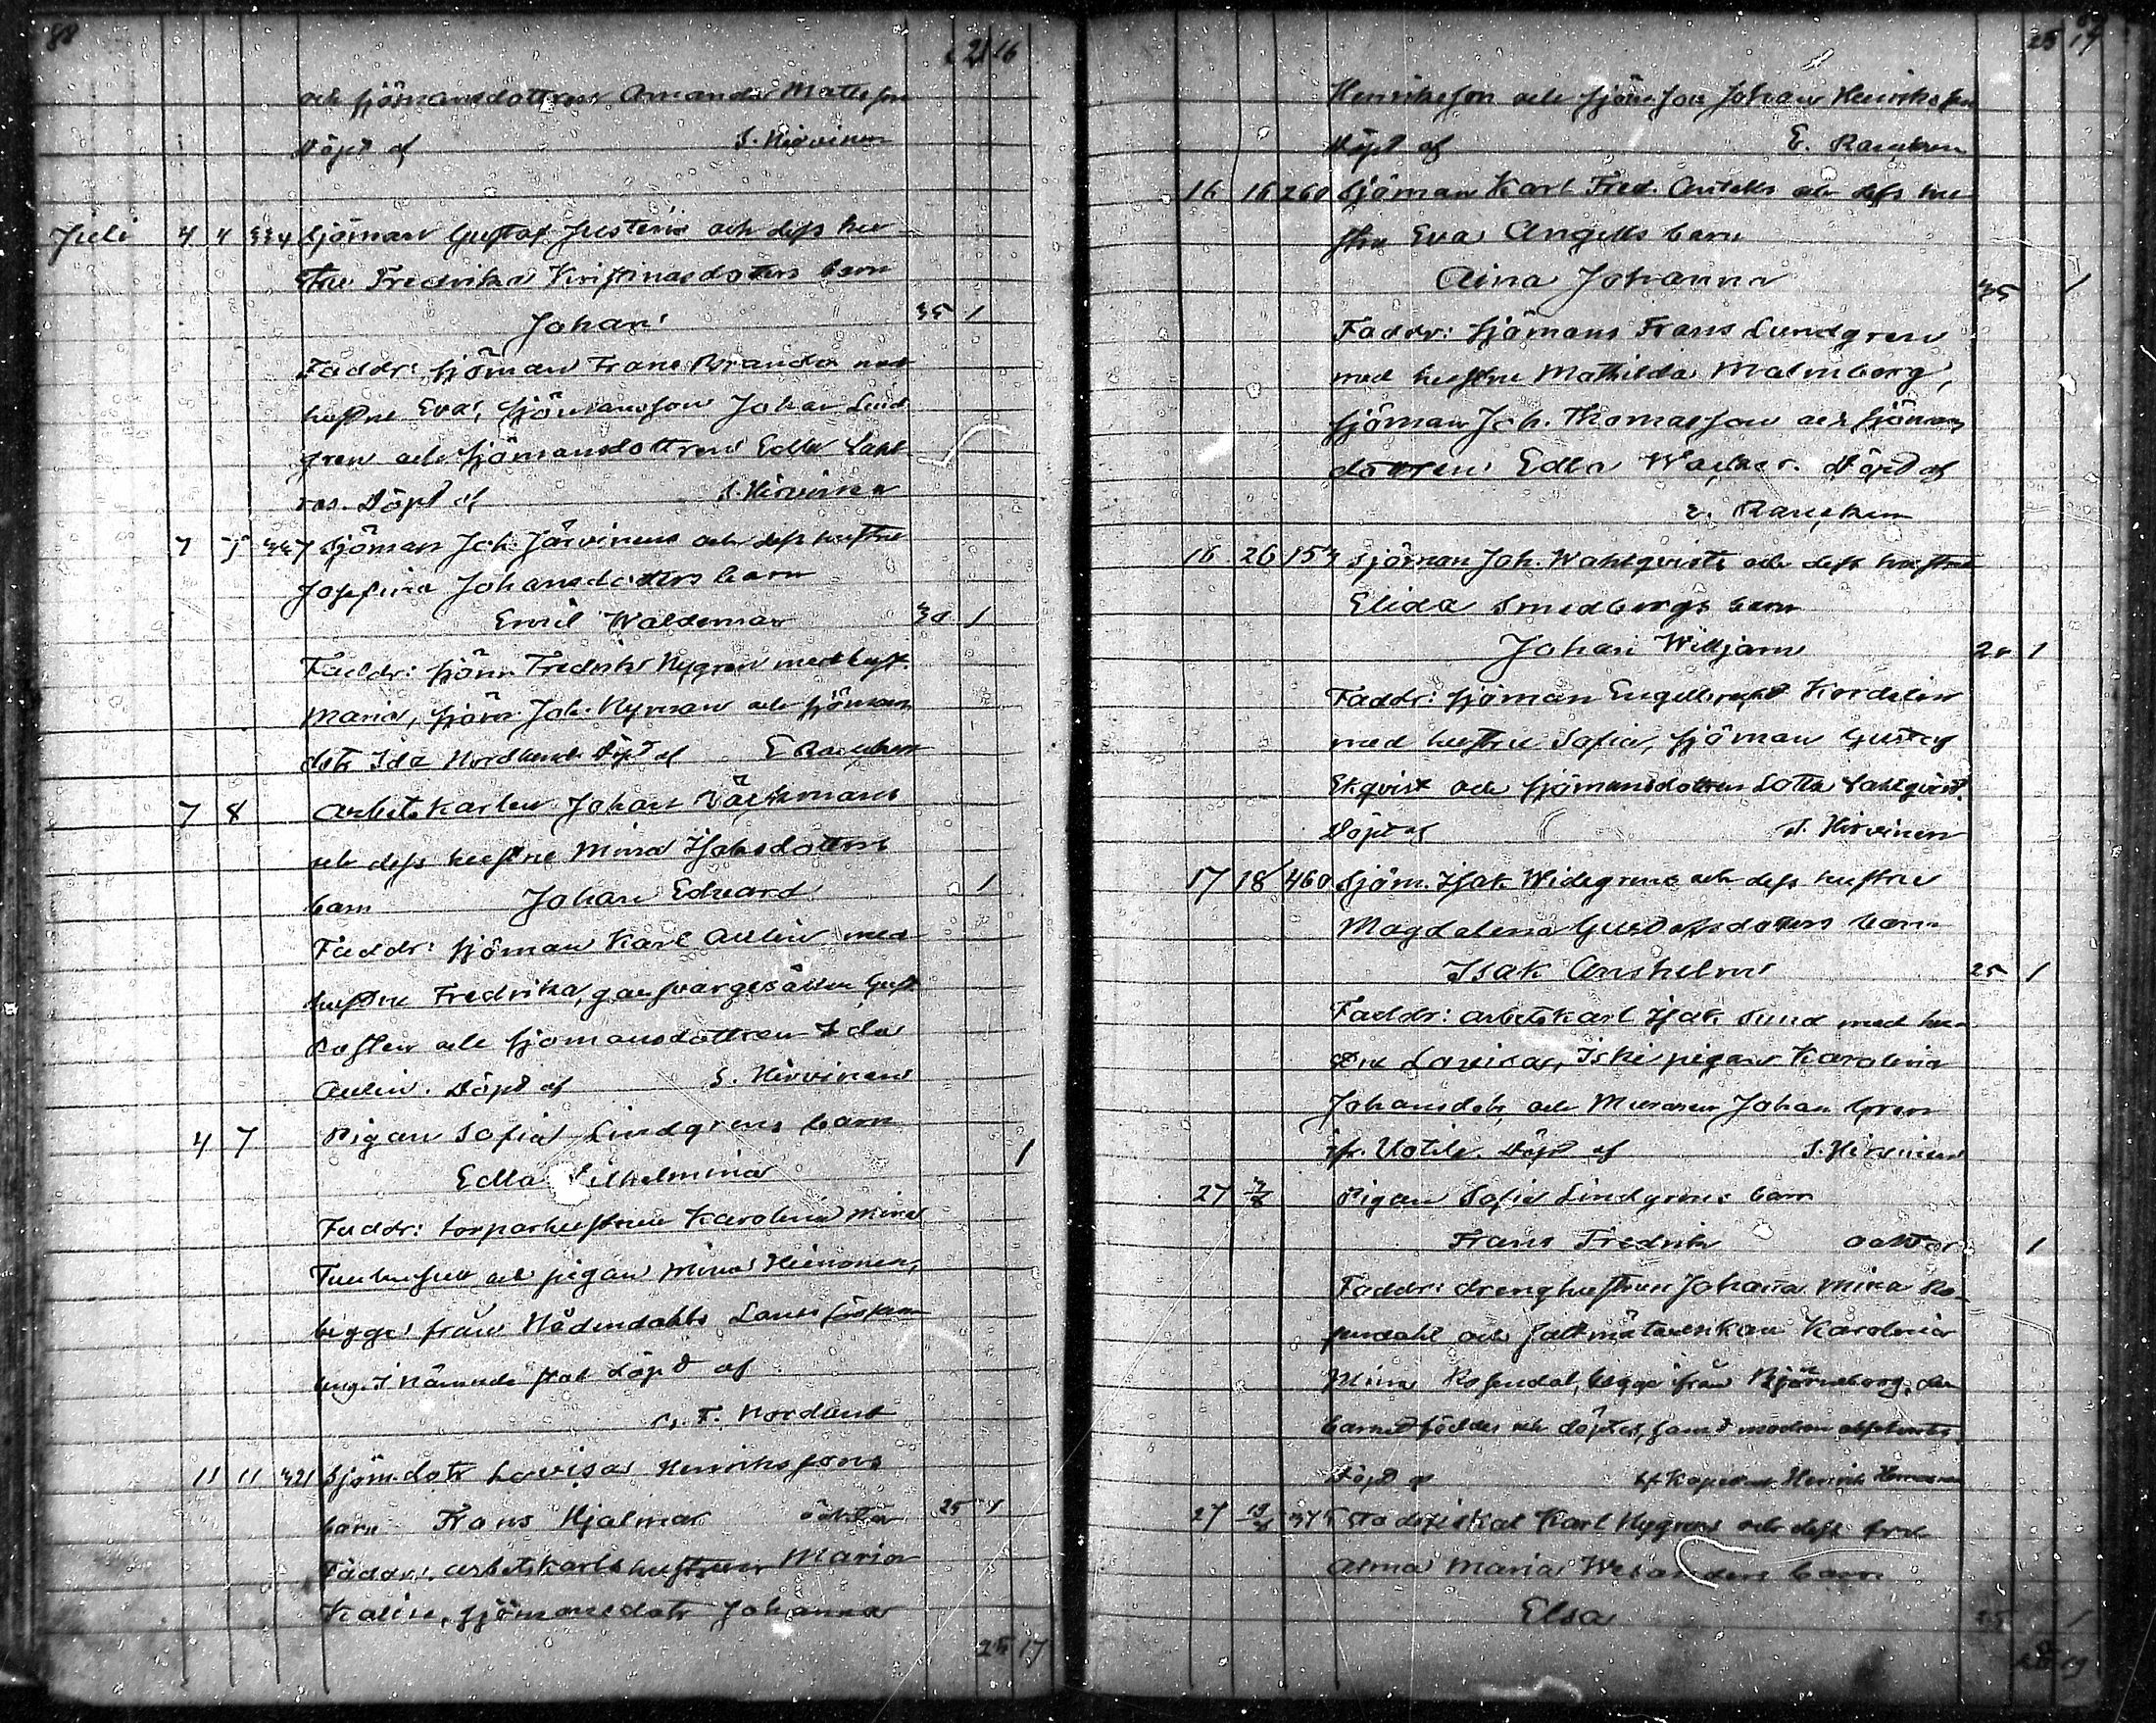 88
21 16
och sjömansdottren Amanda Mattsson
Döpt af S. Hirvinen
Juli 4 4 334 Sjöman Gustaf Justéns och dess hu
stru Fredrika Kristinasdotters barn
Johan 35 1
Faddr: sjöman Frans Brander med
hustru Eva, sjömansson Johan Lind
gren och sjömansdottren Edla Lahl
ros. Döpt af S. Hirvinen
7 7 Sjöman Joh. Järvinens och dess hustru
Josefina Johansdotters barn
Emil Waldemar 30 1
Faddr: sjöm. Fredrik Nygren med hust.
Maria, sjöm. Joh. Nyman och sjömans
dotr Ida Nordlund. Döpt af E. Rancken
7 8 Arbetskarlen Johan Väckmans
och dess hustru Mina Isaksdotters
barn Johan Edvard 1
Faddr: sjöman Karl Aulin med
hustru Fredrika, garfvargesällen Gust
och sjömansdottren Ida
Aulin. Döpt af S. Hirvinen
4 7 Pigan Sofia Lindgrens barn
Edla Vilhelmina 1
Faddr: torparhustrun Karolina Mina
och pigan Mina Heinonen,
begge från Nådendahls Landsförsam
ling. I nämnde stad döpt af
F. Nordlund
11 11 321 Sjöm.dotr Lovisa Henrikssons
barn Frans Hjalmar oäkta 25 1
Faddr: arbetskarlshustrun Maria
Kalin, sjömansdotr Johanna
25 17
25 17
Henriksson och sjöm.son Johan Henriksson
Döpt af E. Rancken
16 16 260 Sjöman Karl Fred. och dess hu
stru Eva Angells barn
Aina Johanna 35 1
Faddr: sjömans Frans Lundgren
med hustru Mathilda Malmberg,
sjöman Joh. Thomasson och sjömans
dottren Edla Wacker. Döpt af
E. Rancken
16 26 153 Sjöman Joh. Wahlqvists och dess hustru
Elida Smedbergs barn
Johan Willijam 20 1
Faddr: sjöman Engelbrekt Kordelin
med hustru Sofia, sjöman Gustaf
Ekqvist och sjömansdottren Lotta Dahlqvist.
Döpt af S. Hirvinen
17 18 460 Sjöm. Isak Widegrens och dess hustru
Magdalena Gustafsdotters barn
Isak Anshelm 25 1
Faddr: arbetskarl Isak Sund med hu-
stru Lovisa, pigan Karolina
Johansdotr och Muraren Johan Gren
fr. Uotila. Döpt af S. Hirvinen
27 7/8 Pigan Sofia Lindgrens barn
Frans Fredrik oäkta 1
Faddr: drenghustrun Johanna Mina Ro-
sendahl och Karolina
Mina Rosendal, begge från Björneborg, der
barnet föddes och döptes, samt modren absolverts.
Döpt af Kapellan Henrik
27 Stadsfiskal Karl Nygrens och dess fru
Alma Maria Welanders barn
Elsa 35 1
19